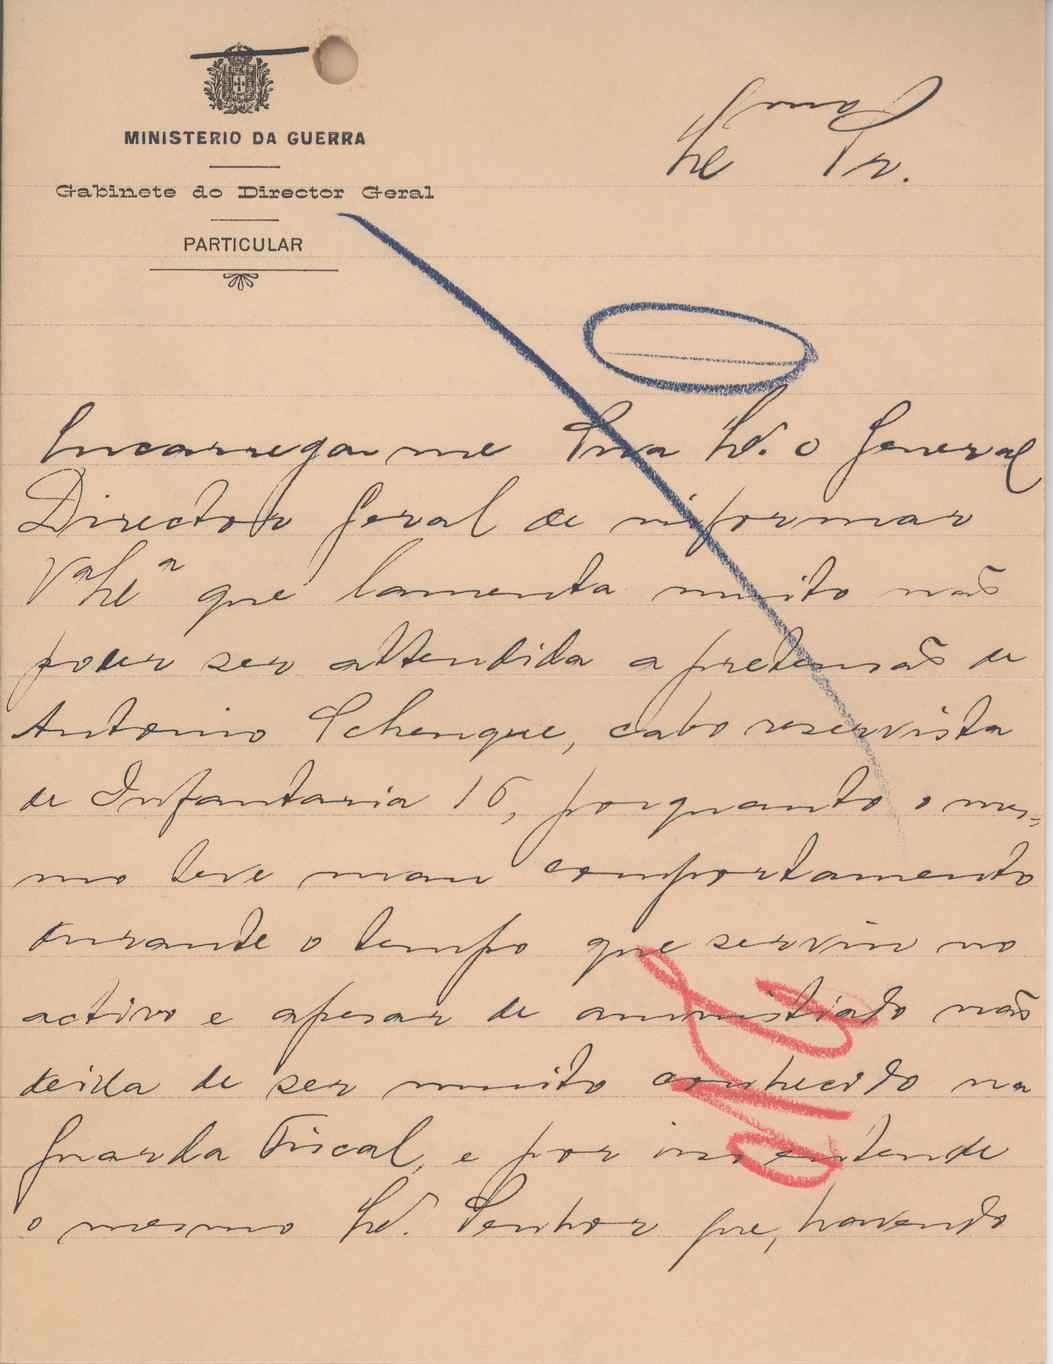 MINISTERIO DA GUERRA
Gabinete do Director Geral
PARTICULAR
Encarrega-me Sua Exª. o General
Director Geral de informar
Vª Exª que lamenta muito não
poder ser attendida a pretensão de
Antonio Schenque, cabo reservista
de Infantaria 16, porquanto o mes-
mo teve mau comportamento
durante o tempo que serviu no
activo e apesar de amnistiado não
deixa de ser muito conhecido na
Guarda Fiscal, e por isso entende
o mesmo Exº. Senhor que, havendo